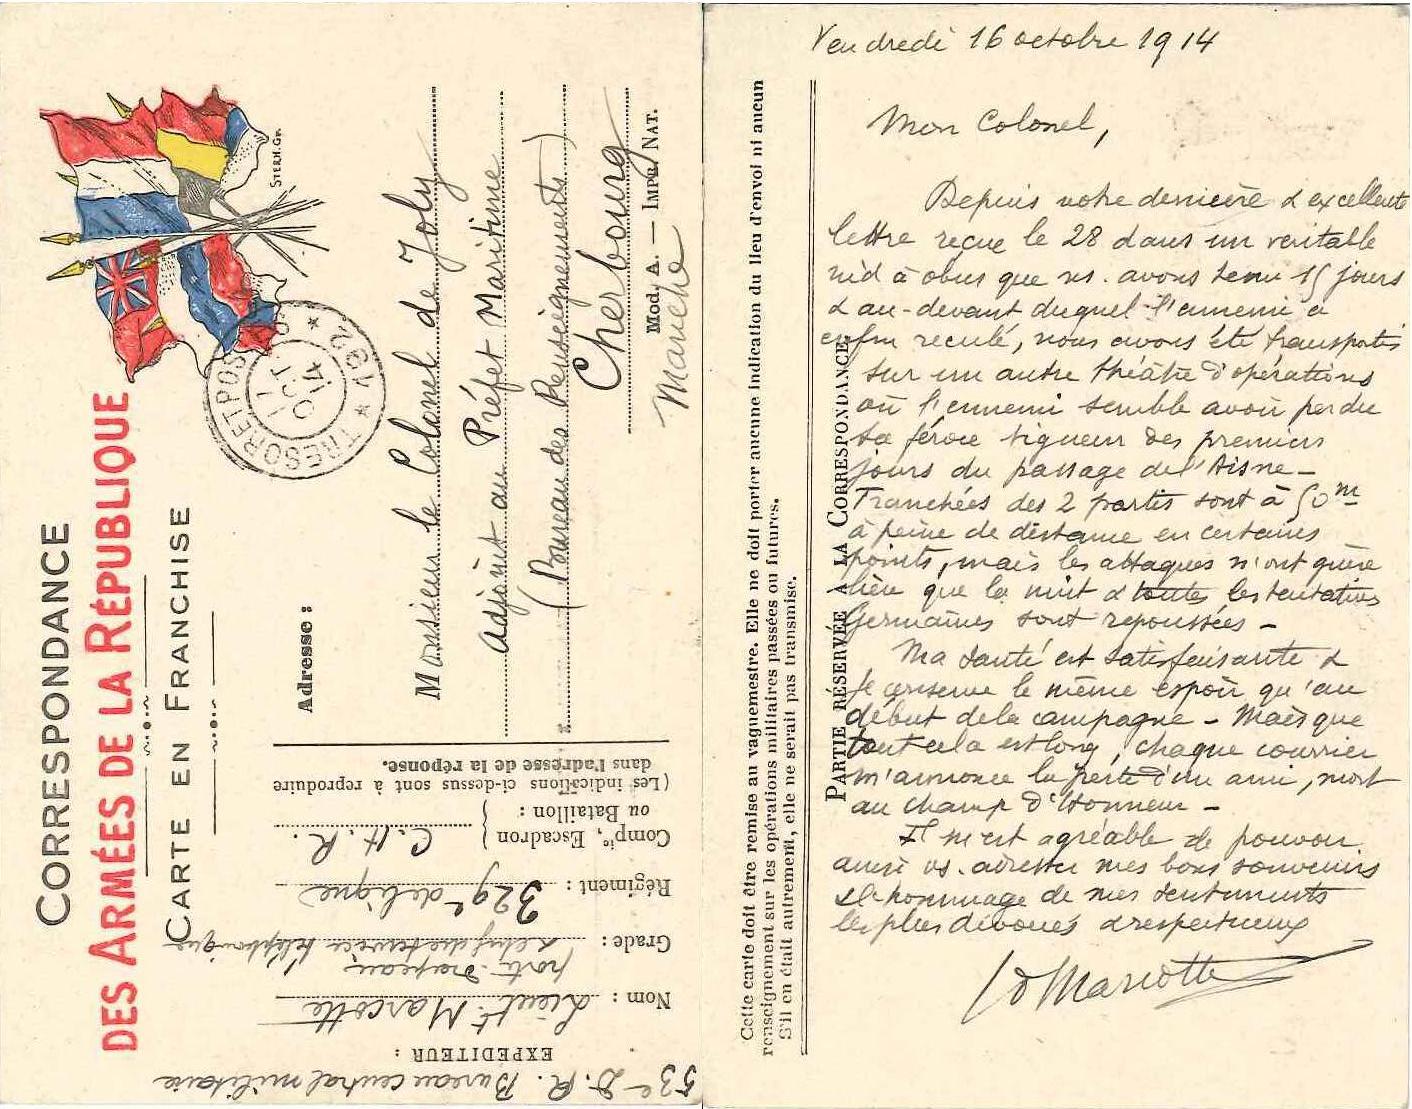 CORRESPONDANCE
DES ARMÉES DE LA RÉPUBLIQUE
CARTE EN FRANCHISE
STERN. Gr.
TRESOR ET POSTES * 192 *
17
OCT
14
Adresse :
Monsieur le Colonel de Joly
adjoint au Préfet Maritime
(Bureau des Renseignements)
Cherbourg
Manche
Mod. A. — IMPR. NAT.
53e D.R. Bureau central militaire
EXPÉDITEUR :
Nom : Lieutt Marcotte
porte-drapeau
Grade : & chef du service téléphonique
Régiment : 329e de ligne
Compie, Escadron
ou Bataillon : } C.H.R.
(Les indications ci-dessus sont à reproduire
dans l'adresse de la réponse.
Cette carte doit être remise au vaguemestre. Elle ne doit porter aucune indication du lieu d'envoi ni aucun
renseignement sur les opérations militaires passées ou futures.
S'il en était autrement, elle ne serait pas transmise.
PARTIE RÉSERVÉE A LA CORRESPONDANCE.
Vendredi 16 octobre 1914
Mon Colonel,
Depuis votre dernière & excellente
lettre reçue le 28 dans un véritable
nid à obus que ns. avons tenu 15 jours
& au-devant duquel l'ennemi a
enfin reculé, nous avons été transportés
sur un autre théâtre d'opérations
où l'ennemi semble avoir perdu
sa féroce vigueur des premiers
jours du passage de l'Aisne -
Tranchées des 2 partis sont à 50m
à peine de distance en certains
points, mais les attaques n'ont guère
lieu que la nuit & toutes les tentatives
Germaines sont repoussées -
Ma santé est satisfaisante &
je conserve le même espoir qu'au
début de la campagne - Mais que
tout cela est long, chaque courrier
m'annonce la perte d'un ami, mort
au champ d'Honneur -
Il m'est agréable de pouvoir
ainsi vs. adresser mes bons souvenirs
& l'hommage de mes sentiments
les plus dévoués & respectueux
Marcotte